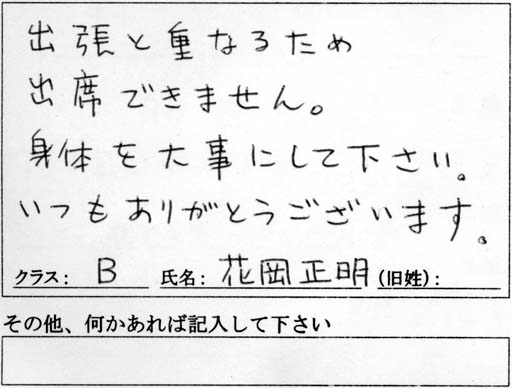 出張と重なるため
出席できません。
身体を大事にして下さい。
いつもありがとうございます。
クラス: B 氏名: 花岡正明 (旧姓):
その他、何かあれば記入して下さい